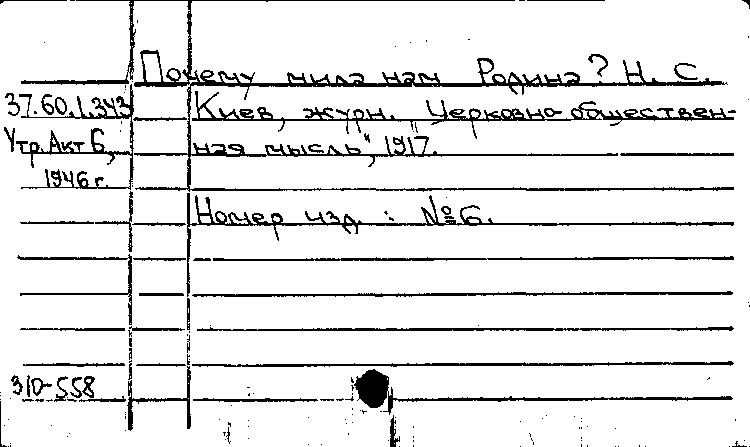 Почему мила нам Родина? Н. С.
37.60.1.343
Киев, журн. „Церковно-общественная
Утр. Акт 6,
ная мысль", 1917.
1946 г.
Номер изд. : № 6.
310-558